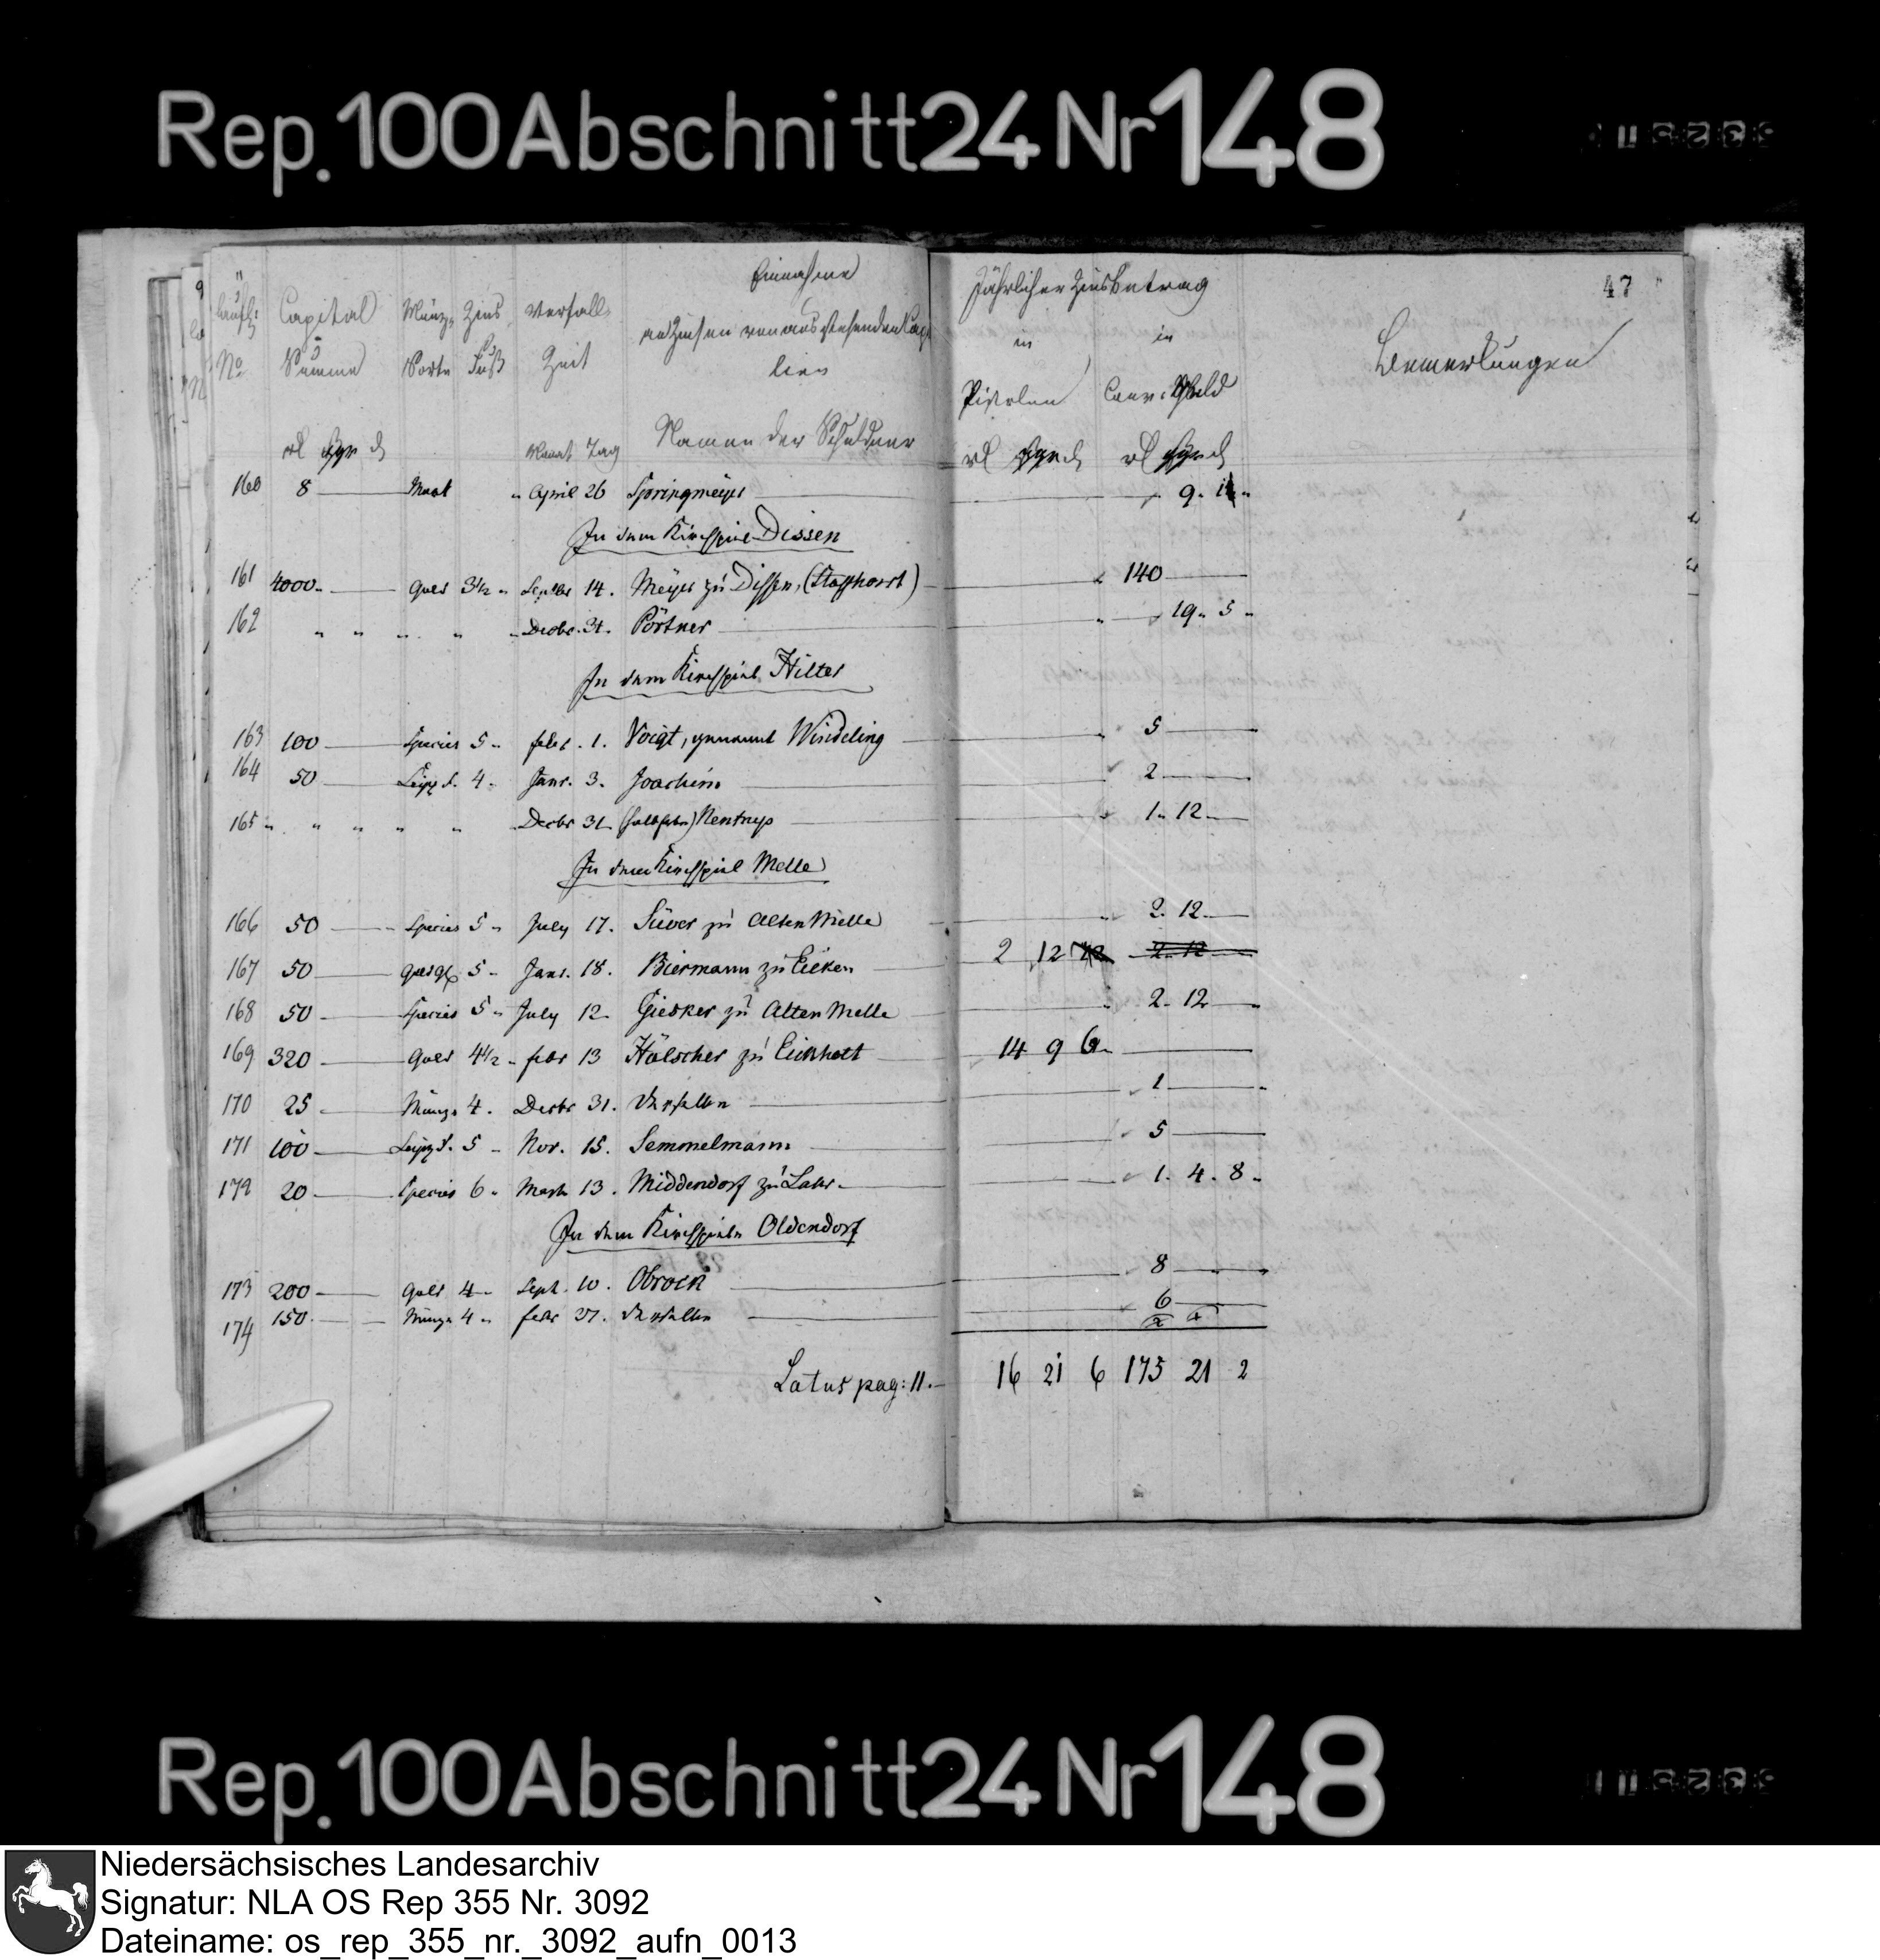 Rep. 100 Abschnitt 24 Nr 148
47
laufd: Capital Münz- Zins Verfall- Einnahme
an Zinsen von ausstehenden Capi
No Summe Sorte Fuß Zeit talien
Jährlicher Zinsbetrag
in in
Pistolen Conv: Geld
Bemerkungen
rl ggr d Monat Tag Namen der Schuldner rl ggr d rl ggr d
160 8 April 26 Springmeÿer 9.
In dem Kirchspiel Dissen
161 4000 Gold 3 1/2 " Septbr 14. Meÿer zu Dissen, (Stapshorst) 140
162 " " " " " Decbr. 31. Pörtner 19 " 5 "
In dem Kirchspiel Hilter
163 100 Species 5 " febr. 1. Voigt, genannt Windeling 5
164 50 Leipz. 4 " Janr. 3. Joachim 2
165 " " " " " Decbr 31. Nentrup 1 " 12
In dem Kirchspiel Melle
166 50 Species 5 " July 17. Süver zu Alten Melle 2. 12
167 50 5 " Janr. 18. Biermann zu Eicken 2 12 2 12
168 50 Species 5 " July 12 Giesker zu Alten Melle 2. 12
169 320 Gold 4 1/2 " febr 13 Hölscher zu Eickholt 14 9 6
170 25 Münze 4. Decbr 31. Derselbe 1
171 100 Leipz. 5 " Nov. 15. Semmelmann 5
172 20 Species 6 " März 13. Middendorf zu Laer 1. 4. 8
In dem Kirchspiele Oldendorf
173 200 Gold 4 " Sept. 10. Obrock 8
174 150 Münze 4 " febr 27. Derselbe 6
Latus pag: 11. 16 21 6 175 21 2
Rep. 100 Abschnitt 24 Nr 148
Niedersächsisches Landesarchiv
Signatur: NLA OS Rep 355 Nr. 3092
Dateiname: os_rep_355_nr._3092_aufn_0013